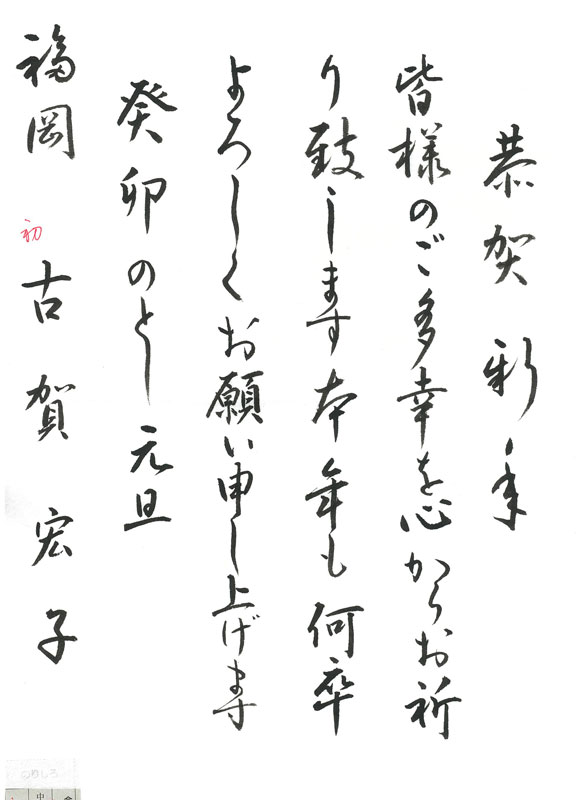 恭賀新年
皆様のご多幸を心からお祈
り致します本年も何卒
よろしくお願い申し上げます
癸卯のとし元旦
福岡 初 古賀宏子
のりしろ